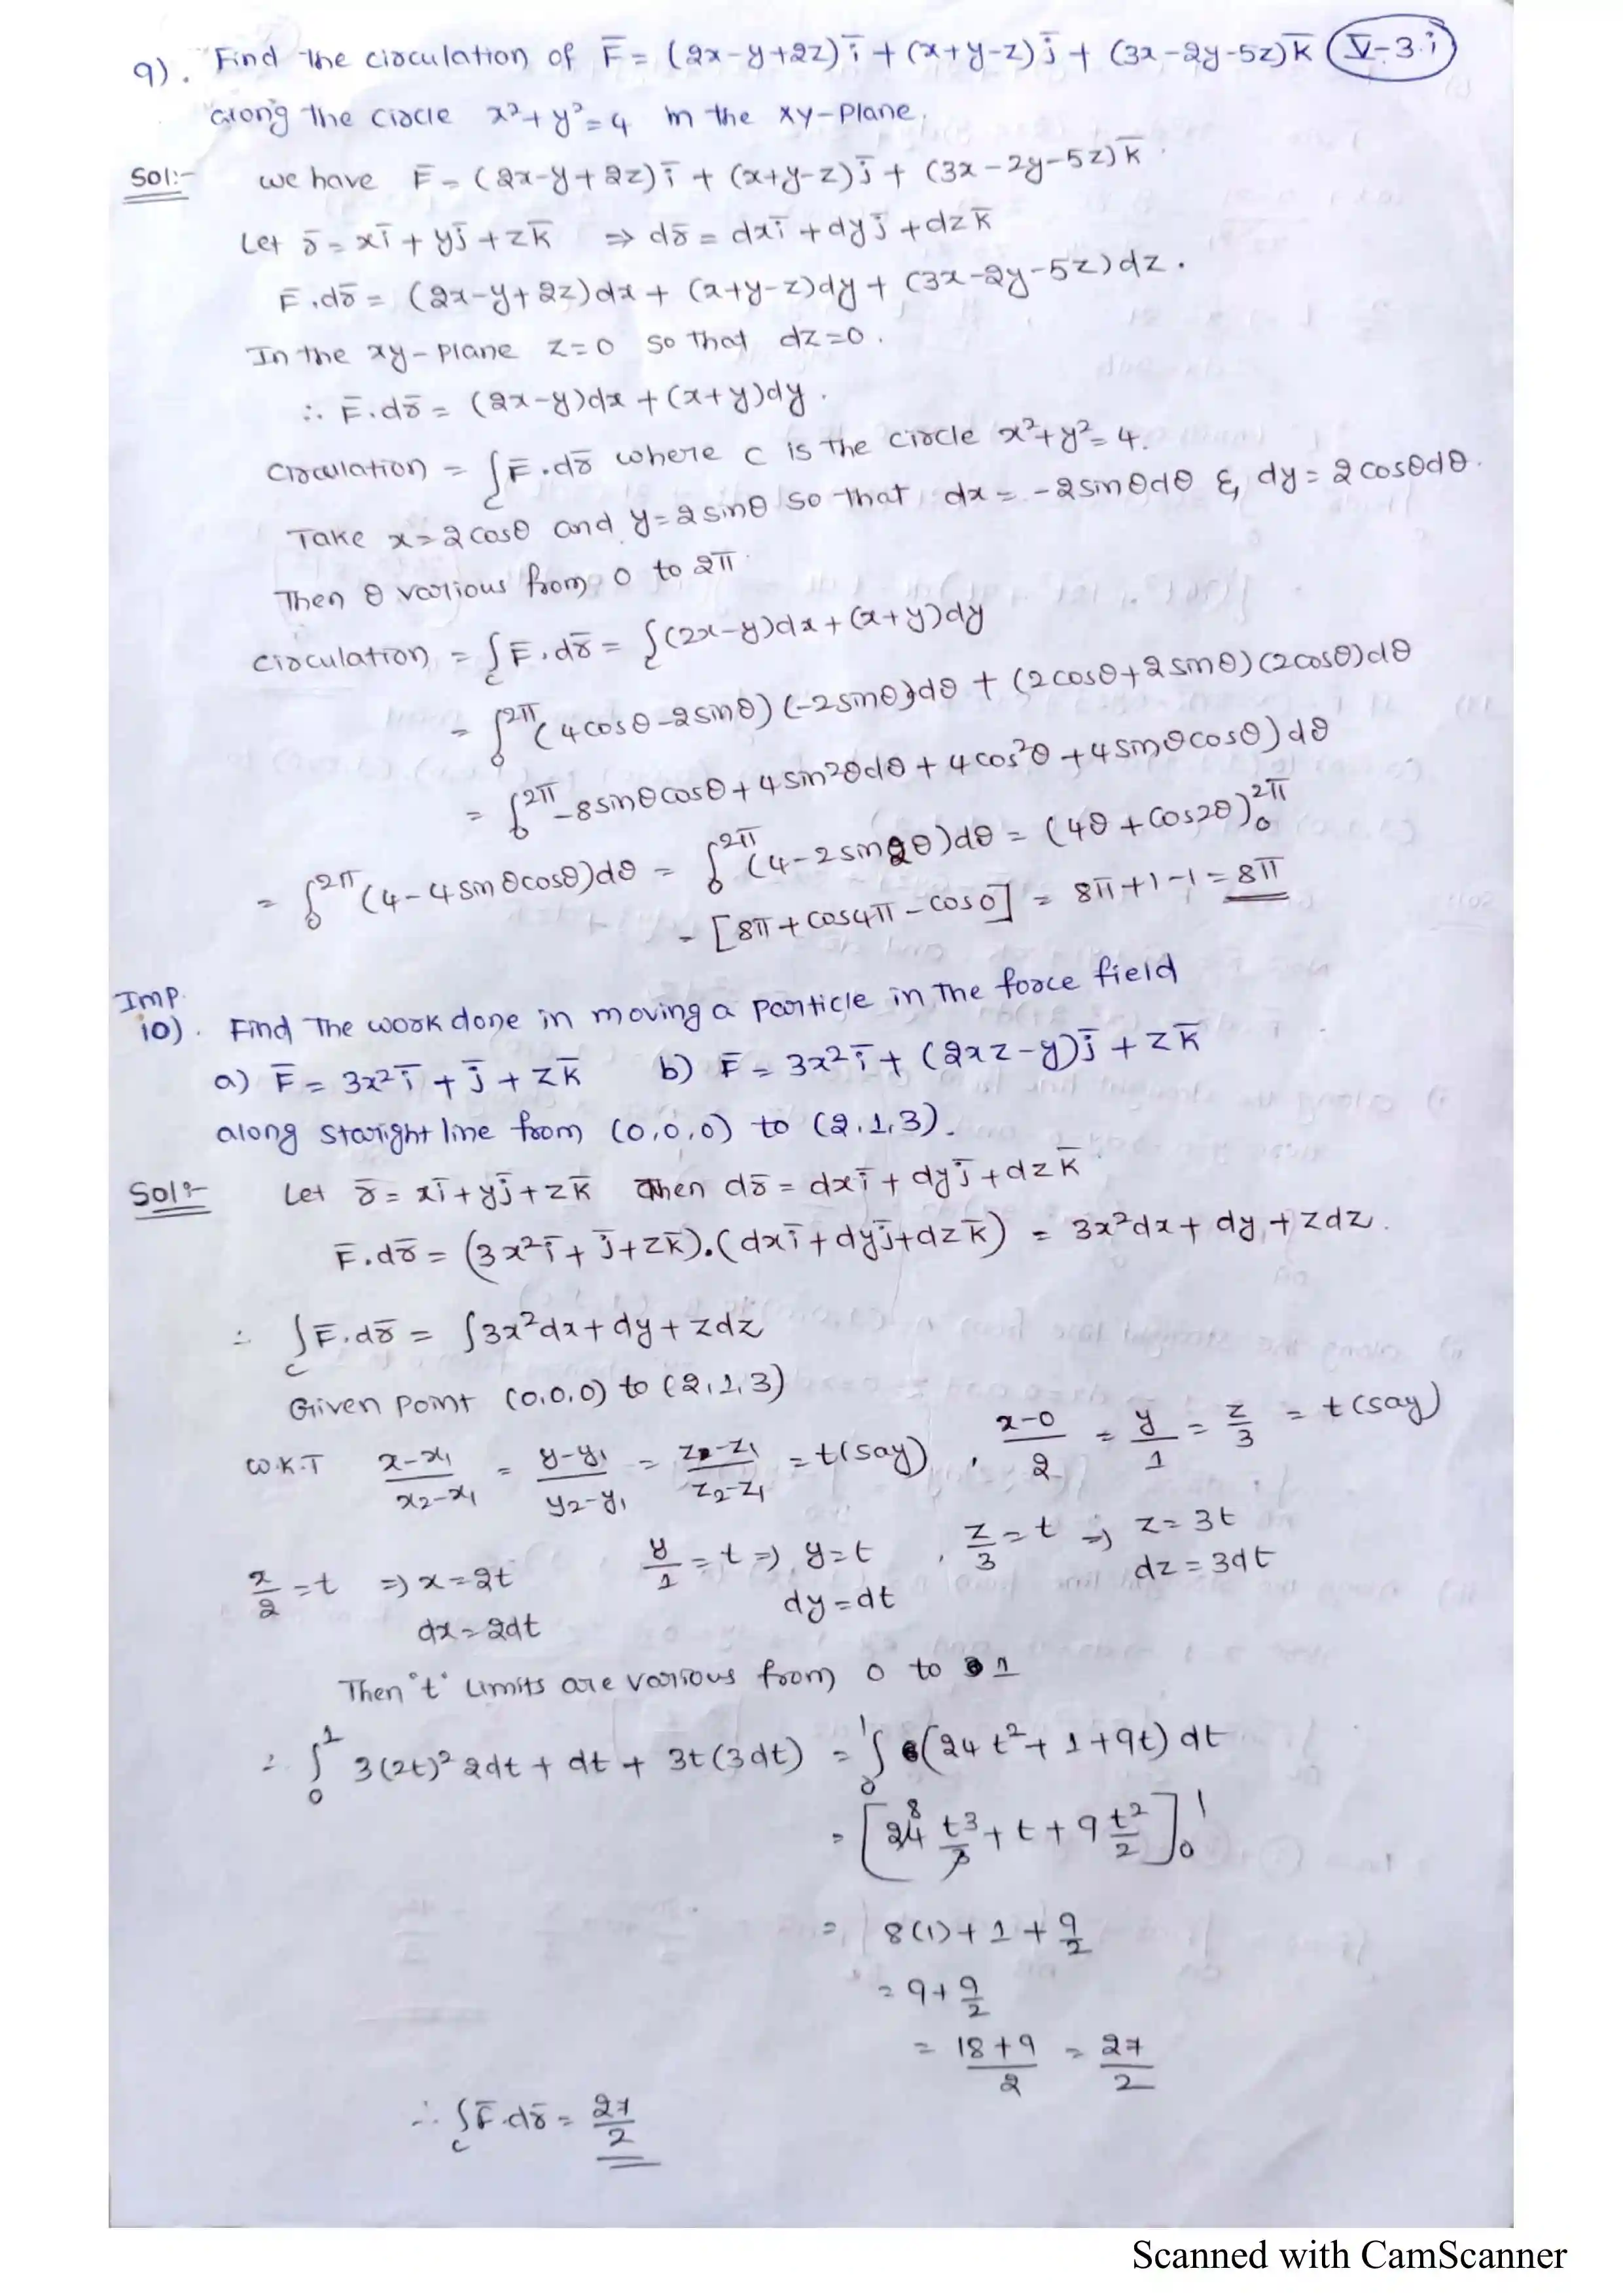 9). Find the circulation of F̅ = (2x-y+2z)i̅ + (x+y-z)j̅ + (3x-2y-5z)k̅ V-3.i
along the circle x²+y²=4 in the xy-plane.
Sol:- we have F̅ = (2x-y+2z)i̅ + (x+y-z)j̅ + (3x-2y-5z)k̅
Let r̅ = xi̅ + yj̅ + zk̅ ⇒ dr̅ = dxi̅ + dyj̅ + dzk̅
F̅.dr̅ = (2x-y+2z)dx + (x+y-z)dy + (3x-2y-5z)dz.
In the xy-plane z=0 so that dz=0.
∴ F̅.dr̅ = (2x-y)dx + (x+y)dy.
circulation = ∫c F̅.dr̅ where c is the circle x²+y²=4.
Take x=2cosθ and y=2sinθ so that dx = -2sinθdθ & dy = 2cosθdθ.
Then θ various from 0 to 2π.
circulation = ∫c F̅.dr̅ = ∫c (2x-y)dx + (x+y)dy
= ∫₀^2π (4cosθ-2sinθ)(-2sinθ)dθ + (2cosθ+2sinθ)(2cosθ)dθ
= ∫₀^2π -8sinθcosθ + 4sin²θdθ + 4cos²θ + 4sinθcosθ)dθ
= ∫₀^2π (4-4sinθcosθ)dθ = ∫₀^2π (4-2sin2θ)dθ = (4θ+cos2θ)₀^2π
= [8π+cos4π-cos0] = 8π+1-1 = 8π
Imp.
10). Find the work done in moving a particle in the force field
a) F̅ = 3x²i̅ + j̅ + zk̅ b) F̅ = 3x²i̅ + (2xz-y)j̅ + zk̅
along staright line from (0,0,0) to (2,1,3).
Sol:- Let r̅ = xi̅+yj̅+zk̅ Then dr̅ = dxi̅ + dyj̅ + dzk̅
F̅.dr̅ = (3x²i̅ + j̅+zk̅).(dxi̅+dyj̅+dzk̅) = 3x²dx + dy + zdz.
∴ ∫c F̅.dr̅ = ∫3x²dx + dy + zdz
Given point (0,0,0) to (2,1,3)
W.K.T (x-x₁)/(x₂-x₁) = (y-y₁)/(y₂-y₁) = (z-z₁)/(z₂-z₁) = t(say), (x-0)/2 = y/1 = z/3 = t(say)
x/2 = t ⇒ x=2t y/1 = t ⇒ y=t , z/3 = t ⇒ z=3t
dx=2dt dy=dt dz=3dt
Then 't' limits are various from 0 to 1
∴ ∫₀^1 3(2t)²2dt + dt + 3t(3dt) = ∫₀^1 (24t²+1+9t)dt
= [24 8 t³/3 + t + 9 t²/2]₀^1
= 8(1)+1+9/2
= 9+9/2
= (18+9)/2 = 27/2
∴ ∫c F̅.dr̅ = 27/2
Scanned with CamScanner